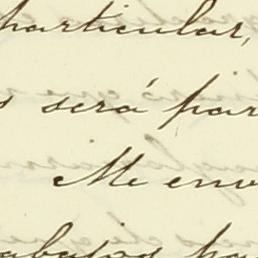 particular,
s será par
Me env
abajos pa